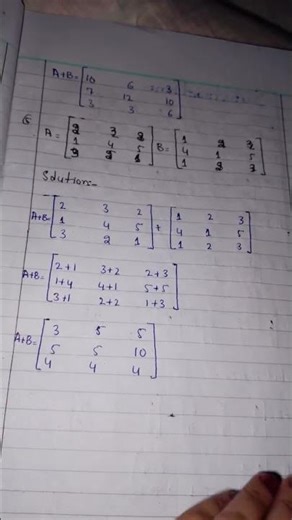 A+B= [10 6 3
7 12 10
3 3 6]
6 A = [2 3 2 B = [1 2 3
1 4 5 4 1 5
3 2 1] 1 2 3]
Solution-
A+B= [2 3 2 + [1 2 3
1 4 5 4 1 5
3 2 1] 1 2 3]
A+B= [2+1 3+2 2+3
1+4 4+1 5+5
3+1 2+2 1+3]
A+B= [3 5 5
5 5 10
4 4 4]